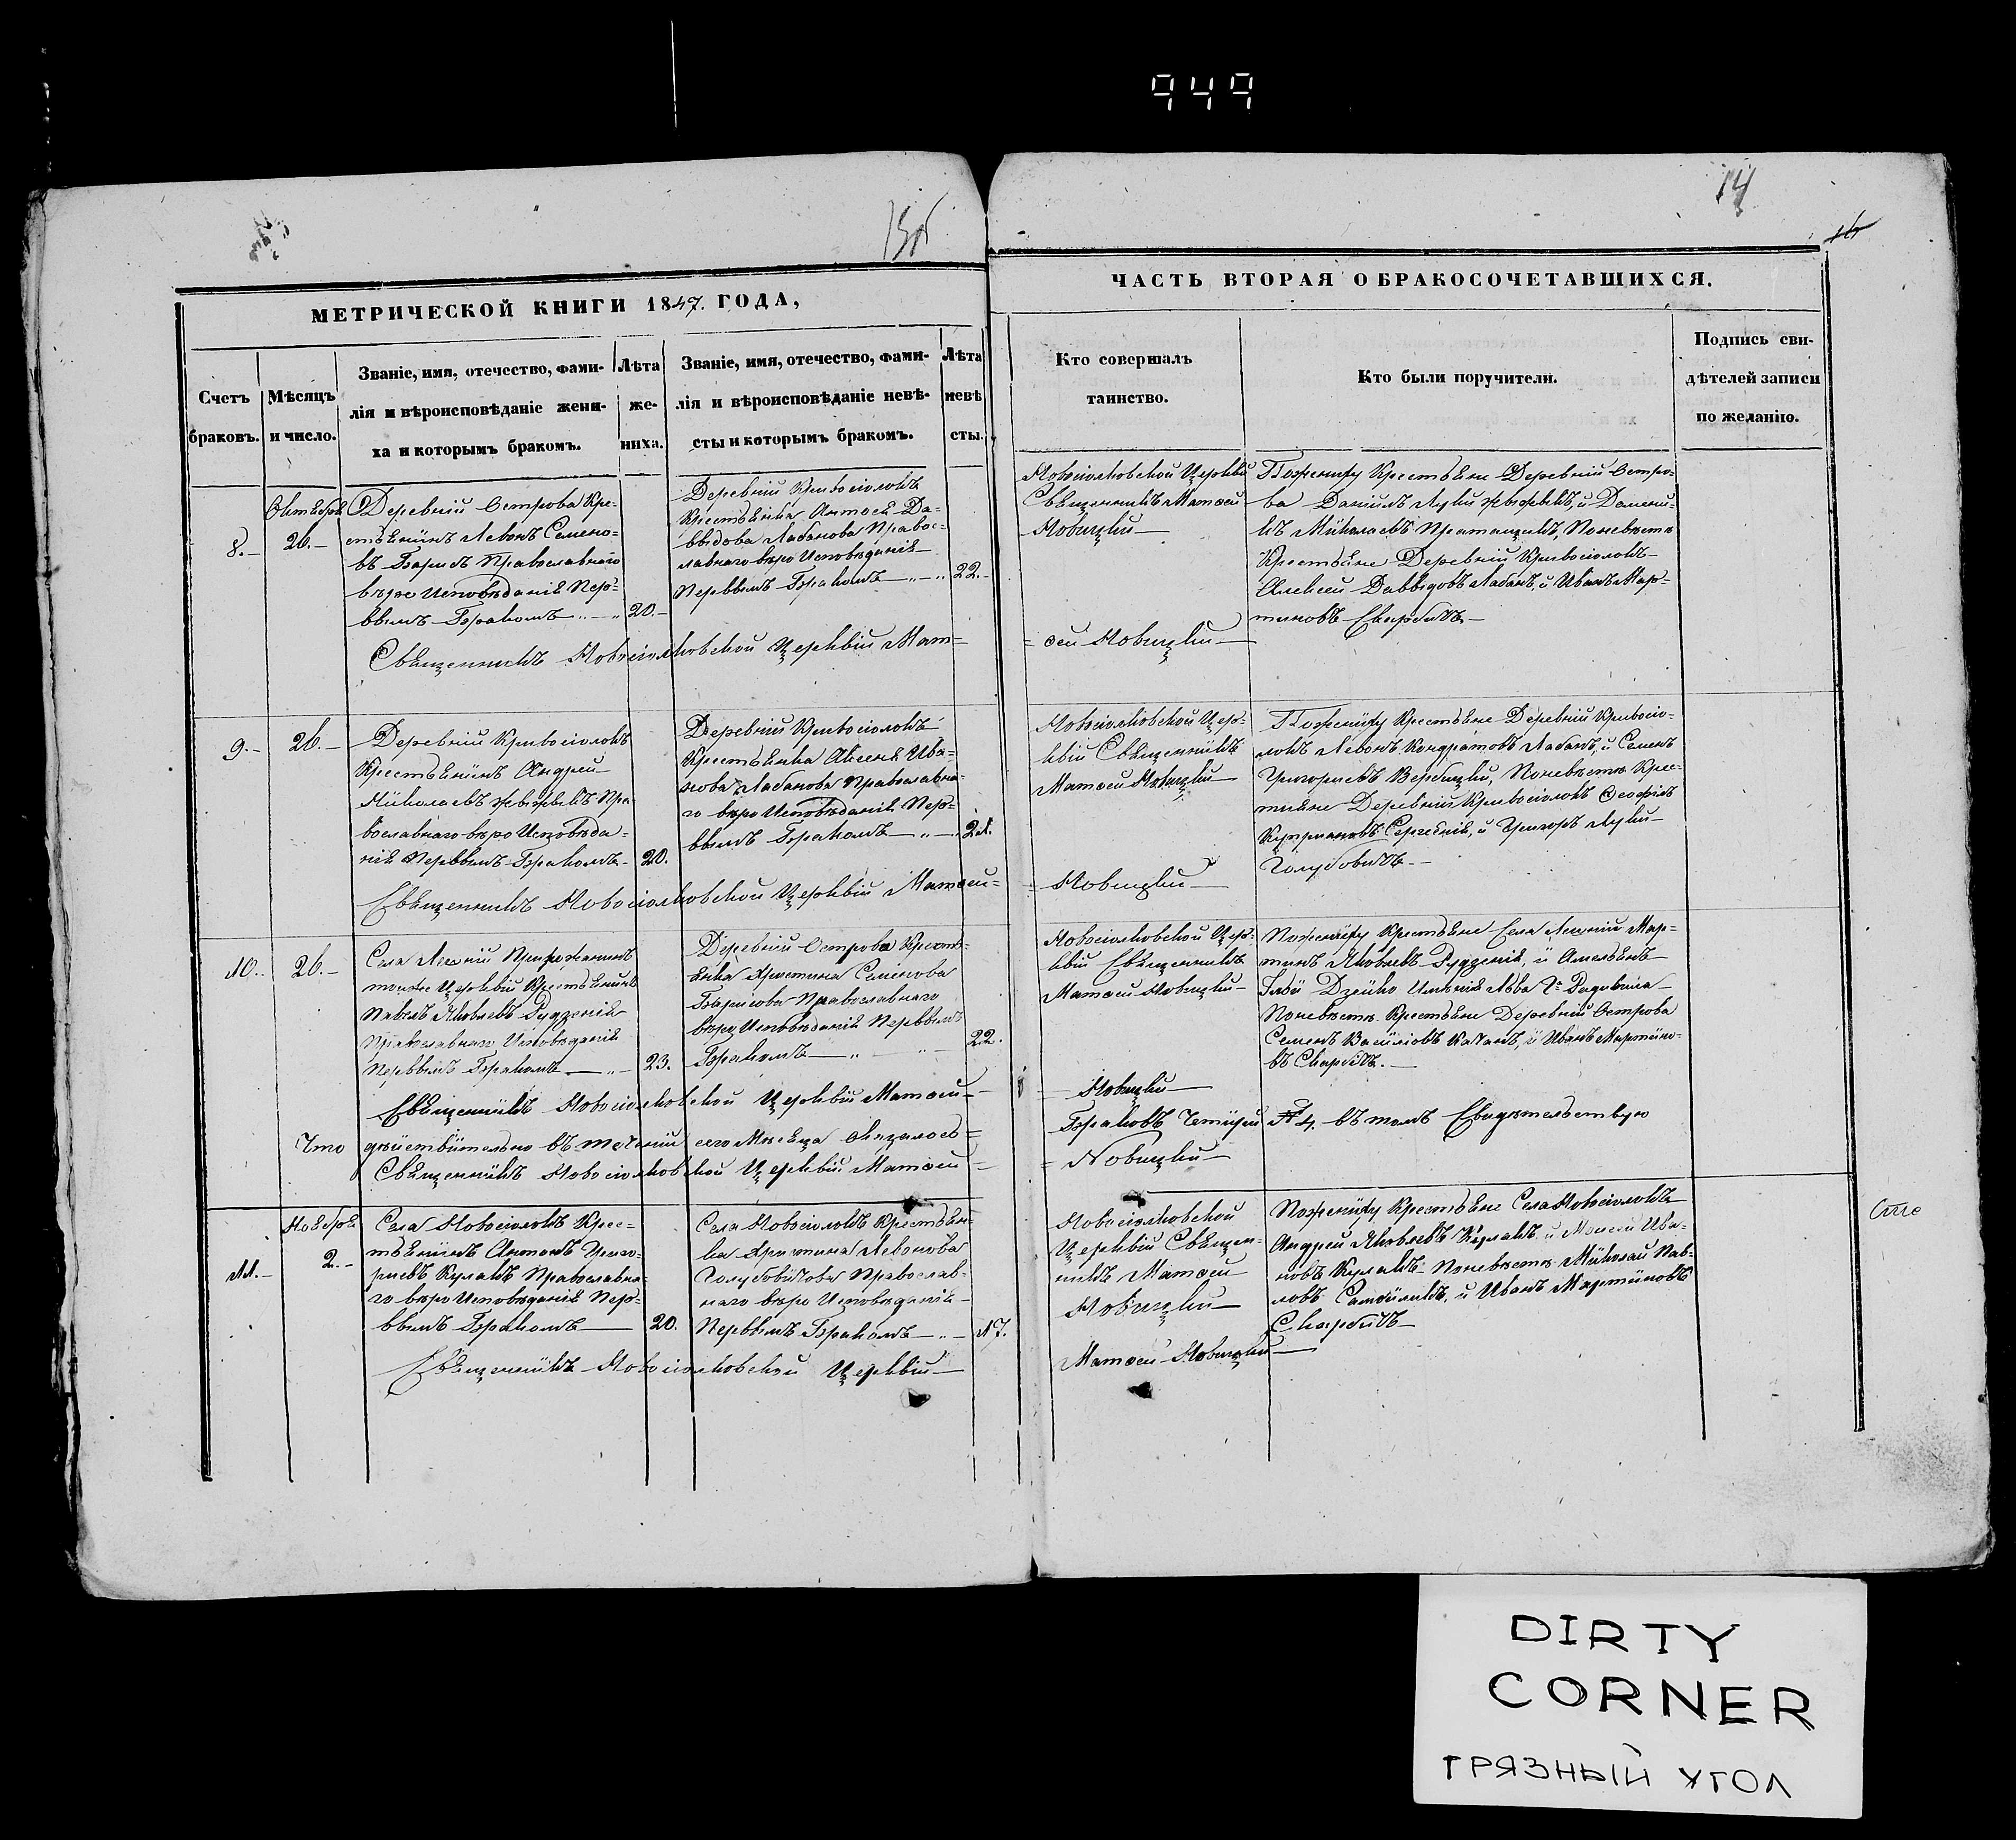 949
14
МЕТРИЧЕСКОЙ КНИГИ 1847. ГОДА,
Счетъ браковъ.
Мѣсяцъ и число.
Званіе, имя, отечество, фами-
лія и вѣроисповѣданіе жени-
ха и которымъ бракомъ.
Лѣта
же-
ниха.
Званіе, имя, отечество, фами-
лія и вѣроисповѣданіе невѣ-
сты и которымъ бракомъ.
Лѣта
невѣ
сты.
ЧАСТЬ ВТОРАЯ О БРАКОСОЧЕТАВШИХСЯ.
Кто совершалъ
таинство.
Кто были поручители.
Подпись сви-
дѣтелей записи
по желанію.
8.-
Октября
26.-
Деревнiй Острова Кре-
стьянинъ Левонъ Семено-
въ Барисъ Православнаго
вѣро Исповѣданія Пер-
ввымъ Бракомъ
20.-
Деревнiй Кривосiолокъ
Крестьянка Антося Да-
ввыдова Лабанова Правос-
лавнаго вѣро Исповѣданія
Перввымъ Бракомъ
22.-
Новосiолковской Церквiй
Священникъ Матѳей
Новицкий
Пожениху Крестьяне Деревнiй Остро-
ва Данiилъ Луки и
Николаевъ Поневѣстѣ
Крестьяне Деревнiй Кривосiолокъ
Алексей Даввыдовъ Лабанъ, и Иванъ Мар-
тиновъ Скарбитъ
Священникъ Новосiолковской Церквiй Мат=
=ѳей Новицкий
9.-
26.-
Деревнiй Кривосiолокъ
Крестьянинъ Андрей
Николаевъ Пра-
вославнаго вѣро Исповѣда-
нія Перввымъ Бракомъ
20.
Деревнiй Кривосiолокъ
Крестьянка Аксеня Ива-
нова Лабанова Православна-
го вѣро Исповѣданія Пер-
ввымъ Бракомъ
21.
Новосiолковской Цер-
квiй Священникъ
Матѳей Новицкий
Пожениху Крестьяне Деревнiй Кривосiо-
локъ Левонъ Кондратовъ Лабанъ, и Семенъ
Григориевъ Вербицкий, Поневѣстѣ Крес-
тьяне Деревнiй Кривосiолокъ Ѳеофилъ
и Григоръ Луки
Голубовитъ
Священникъ Новосiолковской Церквiй Матѳей=
=Новицкий
10.
26.-
Села
Церквiй Крестьянинъ
Павелъ Яковлевъ Рудзеня
Православнаго Исповѣданія
Перввымъ Бракомъ
23.
Деревнiй Острова Кресть-
янка Христина Семенова
Барисова Православнаго
вѣро Исповѣданія Перввымъ
Бракомъ
22.
Новосiолковской Цер-
квiй Священникъ
Матѳей Новицкий
Пожениху Крестьяне Села Мар-
тинъ Яковлевъ Рудзеня, и
Поневѣстѣ Крестьяне Деревнiй Острова
Семенъ Василiовъ и Иванъ Мартино-
въ Скарбитъ.
Священникъ Новосiолковской Церквiй Матѳей
Новицкий
Что дѣйствительно въ теченiй сего Мѣсяца оказалось=
Браковъ Четири № 4. въ томъ Свидѣтельствую
Священникъ Новосiолковской Церквiй Матѳей=
=Новицкий
11.-
Ноября
2.-
Села Новосiолокъ Крес-
тьянинъ Антонъ Григо-
риевъ Кулакъ Православна-
го вѣро Исповѣданія Пер-
ввымъ Бракомъ
20.
Села Новосiолокъ Крестьян-
ка Христина Левонова
Голубовитова Православ-
наго вѣро Исповѣданія
Перввымъ Бракомъ
17.
Новосiолковской
Церквiй Священ-
никъ Матѳей
Новицкий
Пожениху Крестьяне Села Новосiолокъ
Андрей Яковлевъ Кулакъ, и Моисей Ива-
новъ Кулакъ Поневѣстѣ Николай Пав-
ловъ и Иванъ Мартиновъ
Скарбитъ
Священникъ Новосiолковской Церквiй
Матѳей Новицкий
DIRTY
CORNER
ГРЯЗНЫЙ УГОЛ